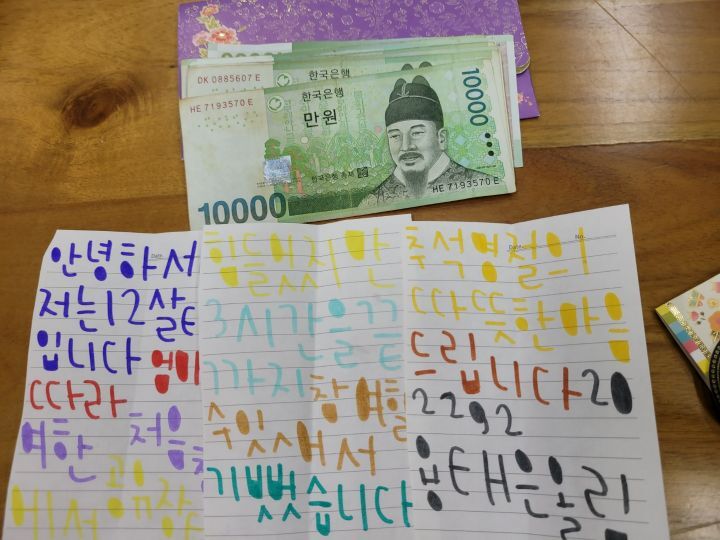 DK 0885607 E
한국은행
HE 7193570 E
한국은행
만원
10000
HE 7193570 E
10000
안녕하서
저는 12살
입니다 엄마
따라
여한 처음
에서
힘들었지만
3시간을 끝
까지 참여할
수있서서
기뻤습니다
Date. No.
추석명절의
따뜻한마음
드립니다 20
2292
용태은올림